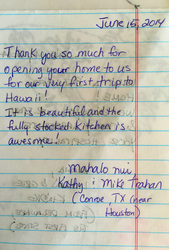 June 15, 2014
Thank you so much for
opening your home to us
for our very first trip to
Hawaii.
It is beautiful and the
fully stocked kitchen is
awesome!
Mahalo nui,
Kathy & Mike Trahan
(Conroe, TX (near
Houston)